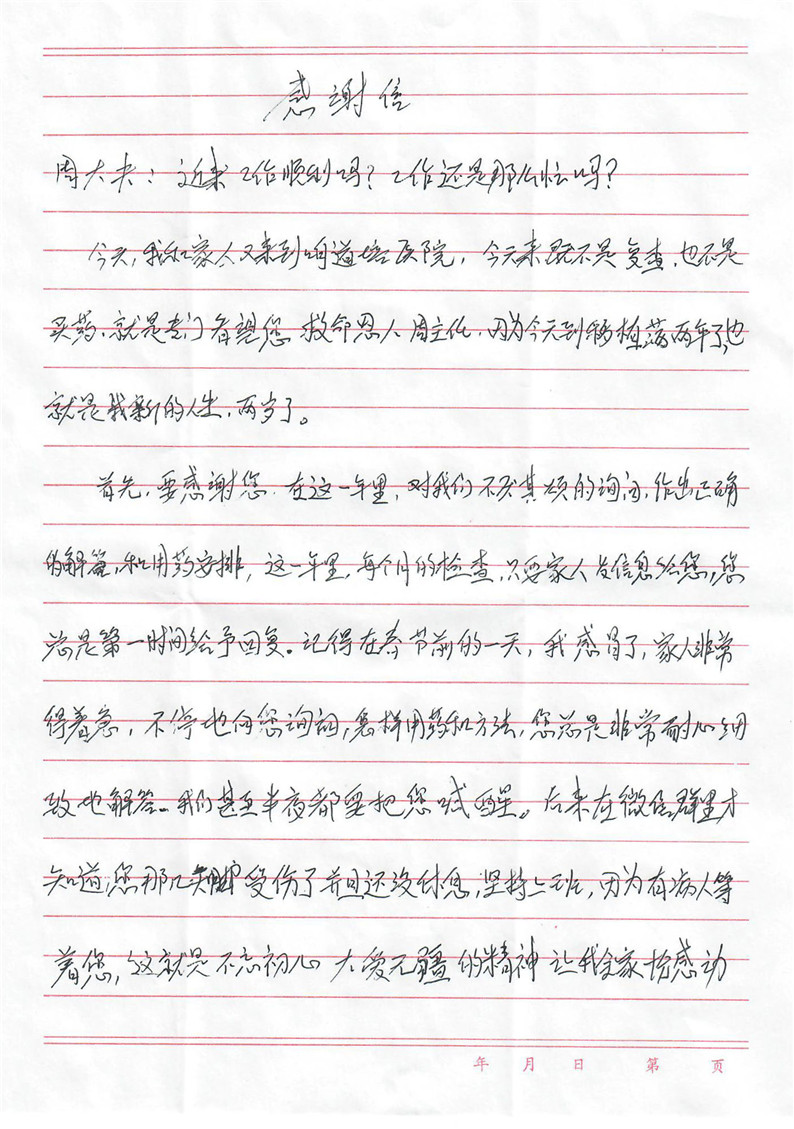 感谢信
周大夫：近来工作顺利吗？工作还是那么忙吗？
今天，我和家人又来到咱道培医院，今天来既不是复查，也不是
买药，就是专门看望您 救命恩人 周主任，因为今天到移植满两年了，也
就是我新的人生，两岁了。
首先，要感谢您，在这一年里，对我们不厌其烦的询问，作出正确
的解答，和用药安排，这一年里，每个月的检查，只要家人发信息给您，您
总是第一时间给予回复。记得在春节前的一天，我感冒了，家人非常
得着急，不停地向您询问，怎样用药和方法，您总是非常耐心细
致地解答。我们甚至半夜都要把您喊醒。后来在微信群里才
知道，您那几天 受伤了并且还没休息，坚持上班，因为有病人等
着您，这就是不忘初心 大爱无疆的精神 让我全家 感动
年 月 日 第 页